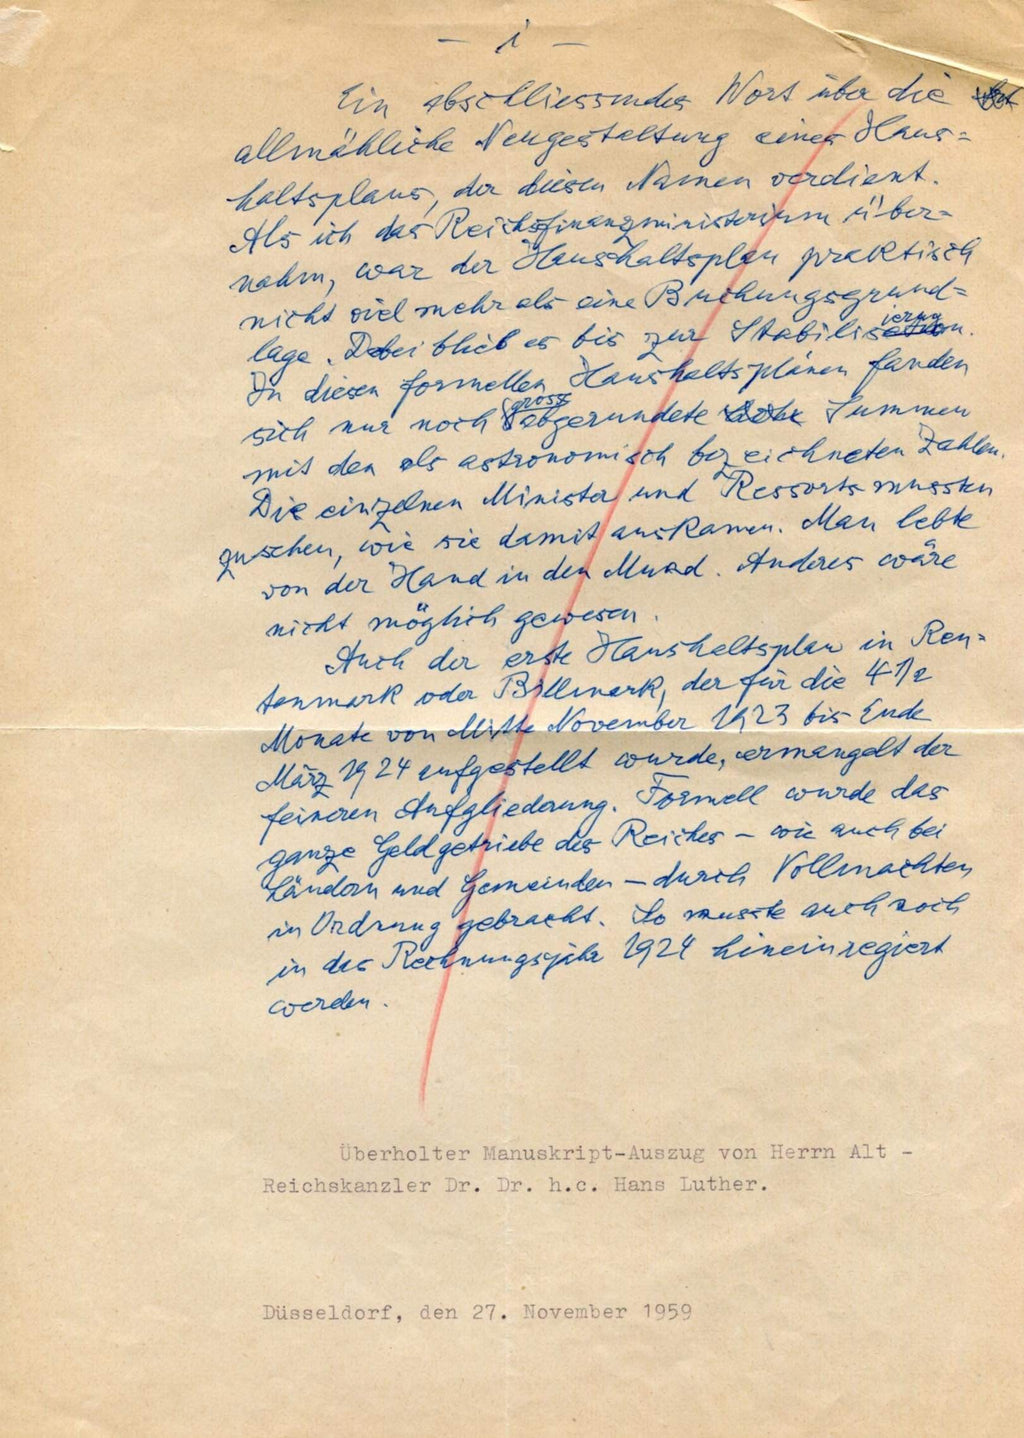 – i –
Ein abschliessendes Wort über die
allmähliche Neugestaltung eines Haus=
haltsplans, der diesen Namen verdient.
Als ich das Reichsfinanzministerium über=
nahm, war der Haushaltsplan praktisch
nicht viel mehr als eine Buchungsgrund=
lage. Dabei blieb es bis zur Stabilisierung.
In diesen formellen Haushaltsplänen fanden
sich nur noch gross abgerundete Summen
mit den als astronomisch bezeichneten Zahlen.
Die einzelnen Minister und Ressorts mussten
zusehen, wie sie damit auskamen. Man lebte
von der Hand in den Mund. Anderes wäre
nicht möglich gewesen.
Auch der erste Haushaltsplan in Ren=
tenmark oder Billmark, der für die 4 1/2
Monate von Mitte November 1923 bis Ende
März 1924 aufgestellt wurde, ermangelt der
feineren Aufgliederung. Formell wurde das
ganze Geldgetriebe des Reiches – wie auch bei
Ländern und Gemeinden – durch Vollmachten
in Ordnung gebracht. So musste auch noch
in das Rechnungsjahr 1924 hineinregiert
werden.
Überholter Manuskript-Auszug von Herrn Alt -
Reichskanzler Dr. Dr. h.c. Hans Luther.
Düsseldorf, den 27. November 1959